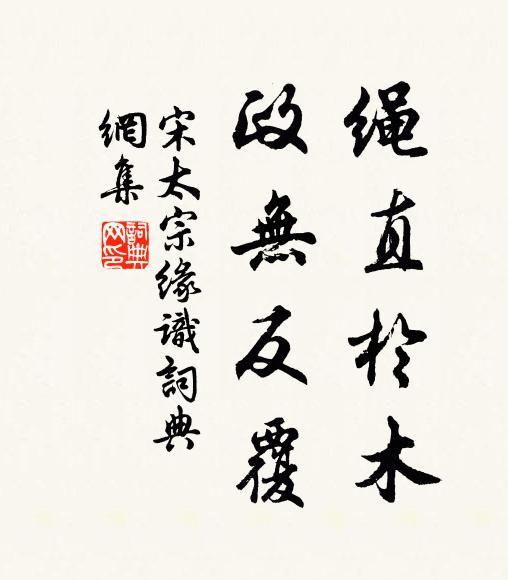 绳直於木
政無反覆
宋太宗缘識詞典
網集
詞典
网印